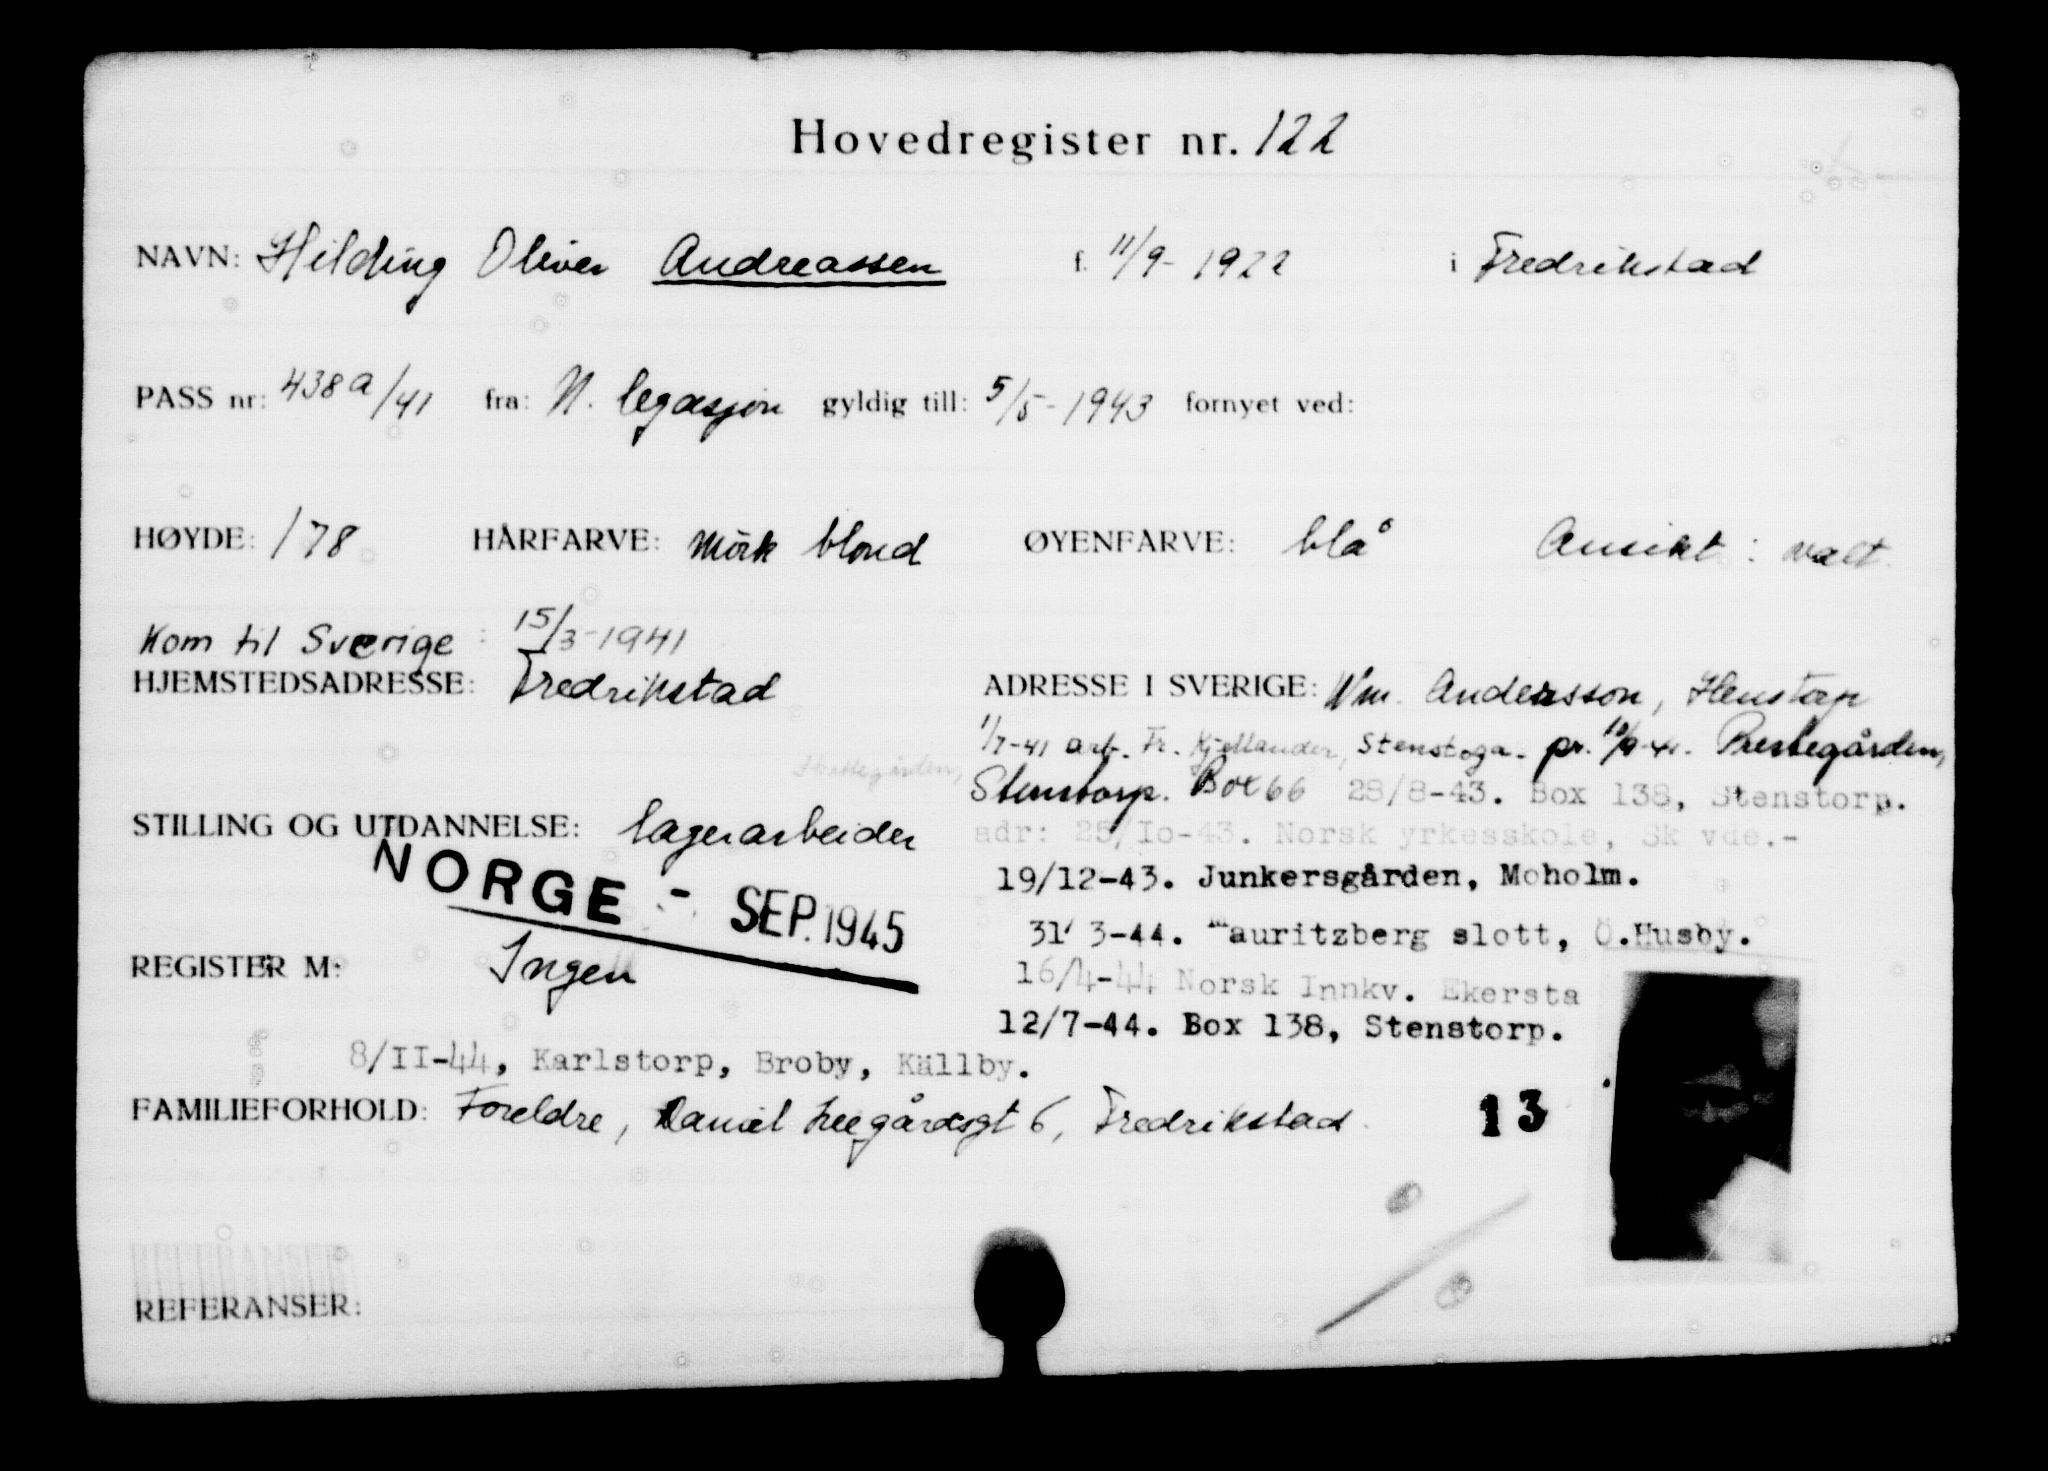 Hovedregister nr. 122
NAVN: Hilding Oliver Andreassen f. 11/9-1922 i Fredrikstad
PASS nr: 438a/41 fra: N. legasjon gyldig till: 5/5-1943 fornyet ved:
HØYDE: 178 HÅRFARVE: mörk blond ØYENFARVE: blå Ansikt: ovalt
Kom til Sverige: 15/3-1941
HJEMSTEDSADRESSE: Fredrikstad
ADRESSE I SVERIGE: Wm. Andersson, Stenstorp
1/7-41 arb. Fr. Kjellander, Stenstoga. pr. 10/9-41. Prestegården,
Stenstorp. Box 66 28/8-43. Box 138, Stenstorp.
adr: 25/Io-43. Norsk yrkesskole, Sk vde.-
19/12-43. Junkersgården, Moholm.
31/ 3-44. Mauritzberg slott, Ö.Husby.
16/4-44 Norsk Innkv. Ekersta
12/7-44. Box 138, Stenstorp.
STILLING OG UTDANNELSE: lagerarbeider
NORGE - SEP. 1945
REGISTER M: Ingen
8/II-44, Karlstorp, Broby, Källby.
FAMILIEFORHOLD: Foreldre, Daniel Leegårdsgt 6, Fredrikstad.
13
REFERANSER: